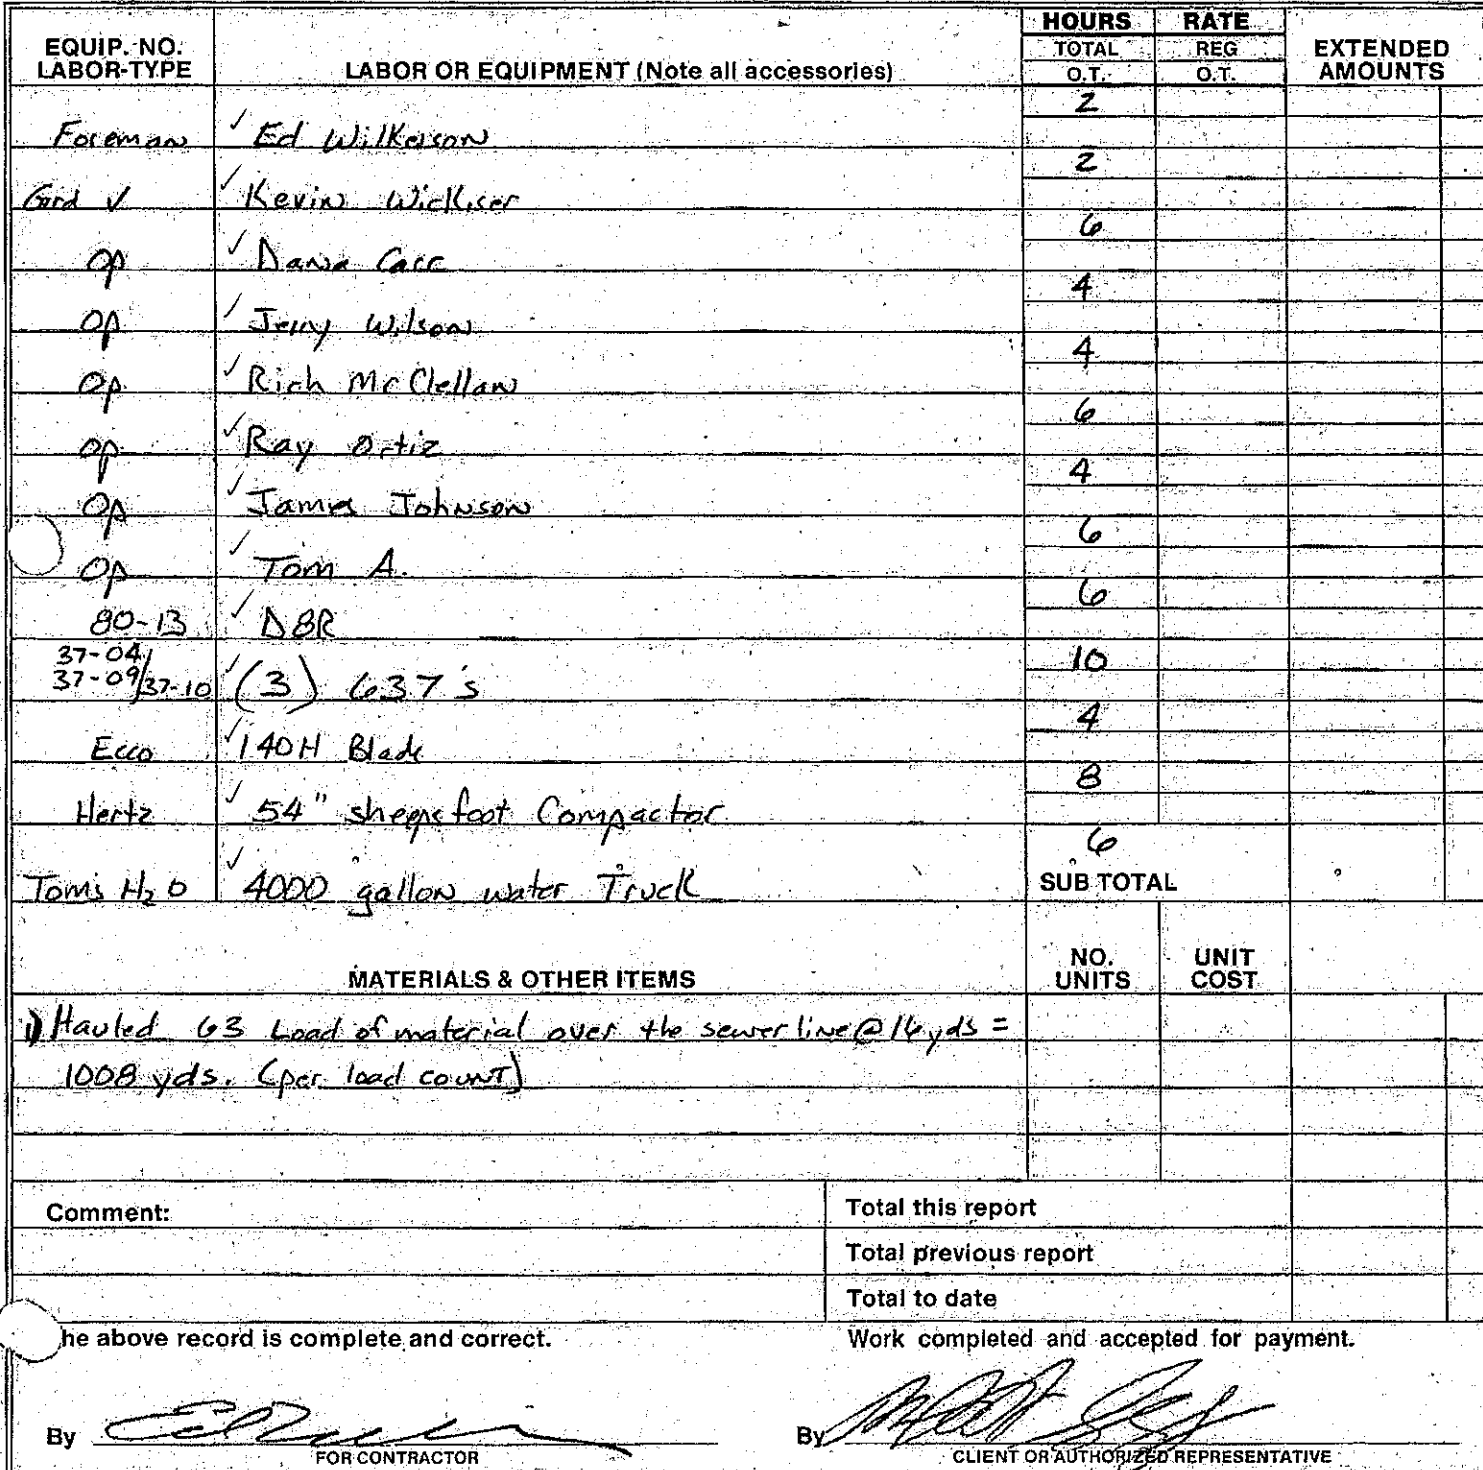 EQUIP. NO. LABOR-TYPE LABOR OR EQUIPMENT (Note all accessories) HOURS TOTAL O.T. RATE REG O.T. EXTENDED AMOUNTS
Foreman ✓ Ed Wilkerson 2
Grd ✓ ✓ Kevin Wickliser 2
Op ✓ Dana Carr 6
Op ✓ Jerry Wilson 4
Op ✓ Rich McClellan 4
Op ✓ Ray Ortiz 6
Op ✓ James Johnson 4
Op ✓ Tom A. 6
80-13 ✓ D8R 6
37-04/
37-09/37-10 ✓ (3) 637's 10
Ecco ✓ 140H Blade 4
Hertz ✓ 54" sheepsfoot Compactor 8
Toms H2O ✓ 4000 gallon water Truck 6
SUB TOTAL
MATERIALS & OTHER ITEMS NO. UNITS UNIT COST
1) Hauled 63 Load of material over the sewer line @ 16 yds =
1008 yds. (per load count)
Comment: Total this report
Total previous report
Total to date
he above record is complete and correct. Work completed and accepted for payment.
By By
FOR CONTRACTOR CLIENT OR AUTHORIZED REPRESENTATIVE